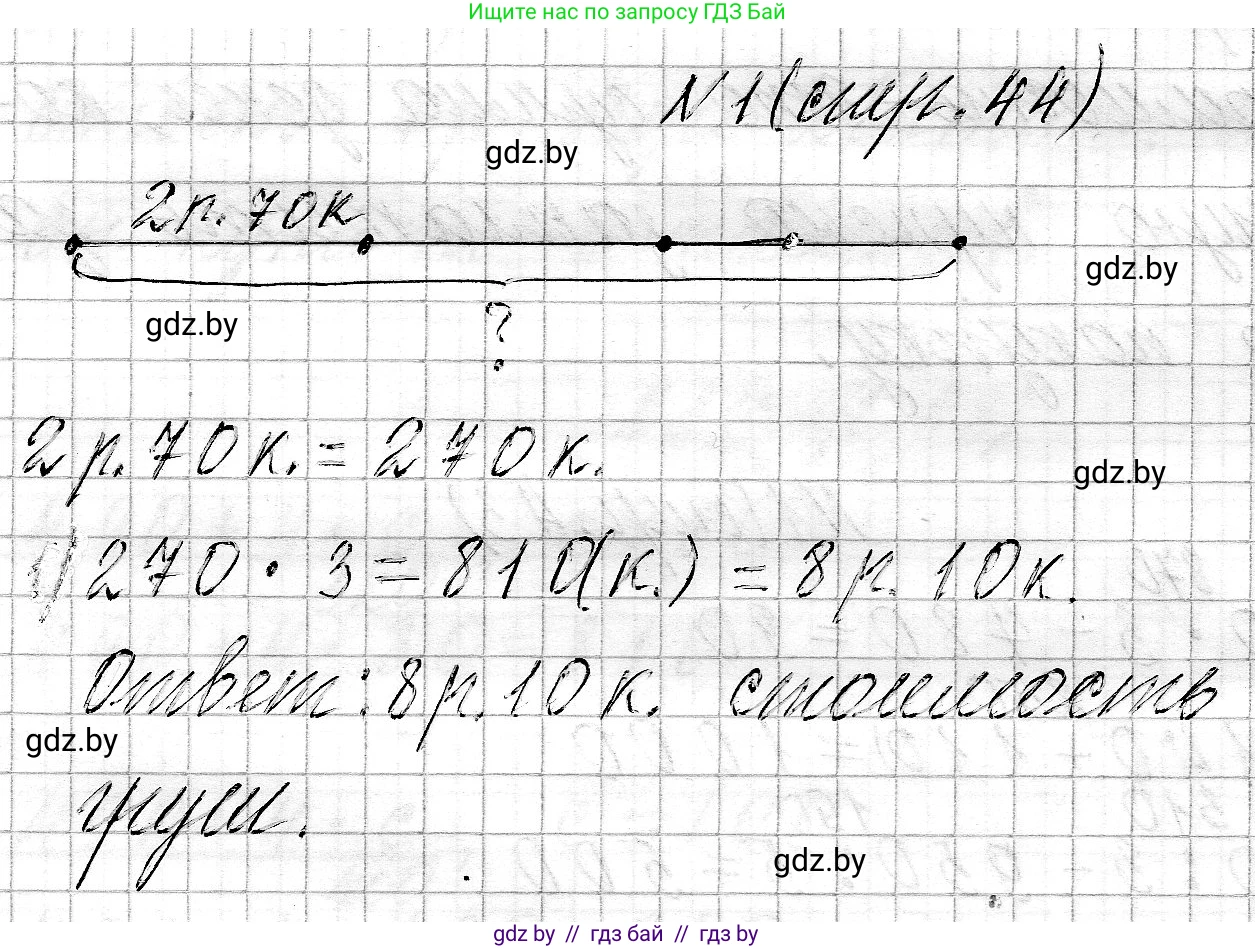 Ищите нас по запросу ГДЗ Бай
N 1 (стр. 44)
gdz.by
2р. 70к
gdz.by
gdz.by
?
2 р. 70 к. = 270 к.
gdz.by
1) 270 · 3 = 810(к.) = 8 р. 10 к.
Ответ: 8 р. 10 к. стоимость
gdz.by
груш.
gdz.by
gdz.by // гдз бай // гдз by